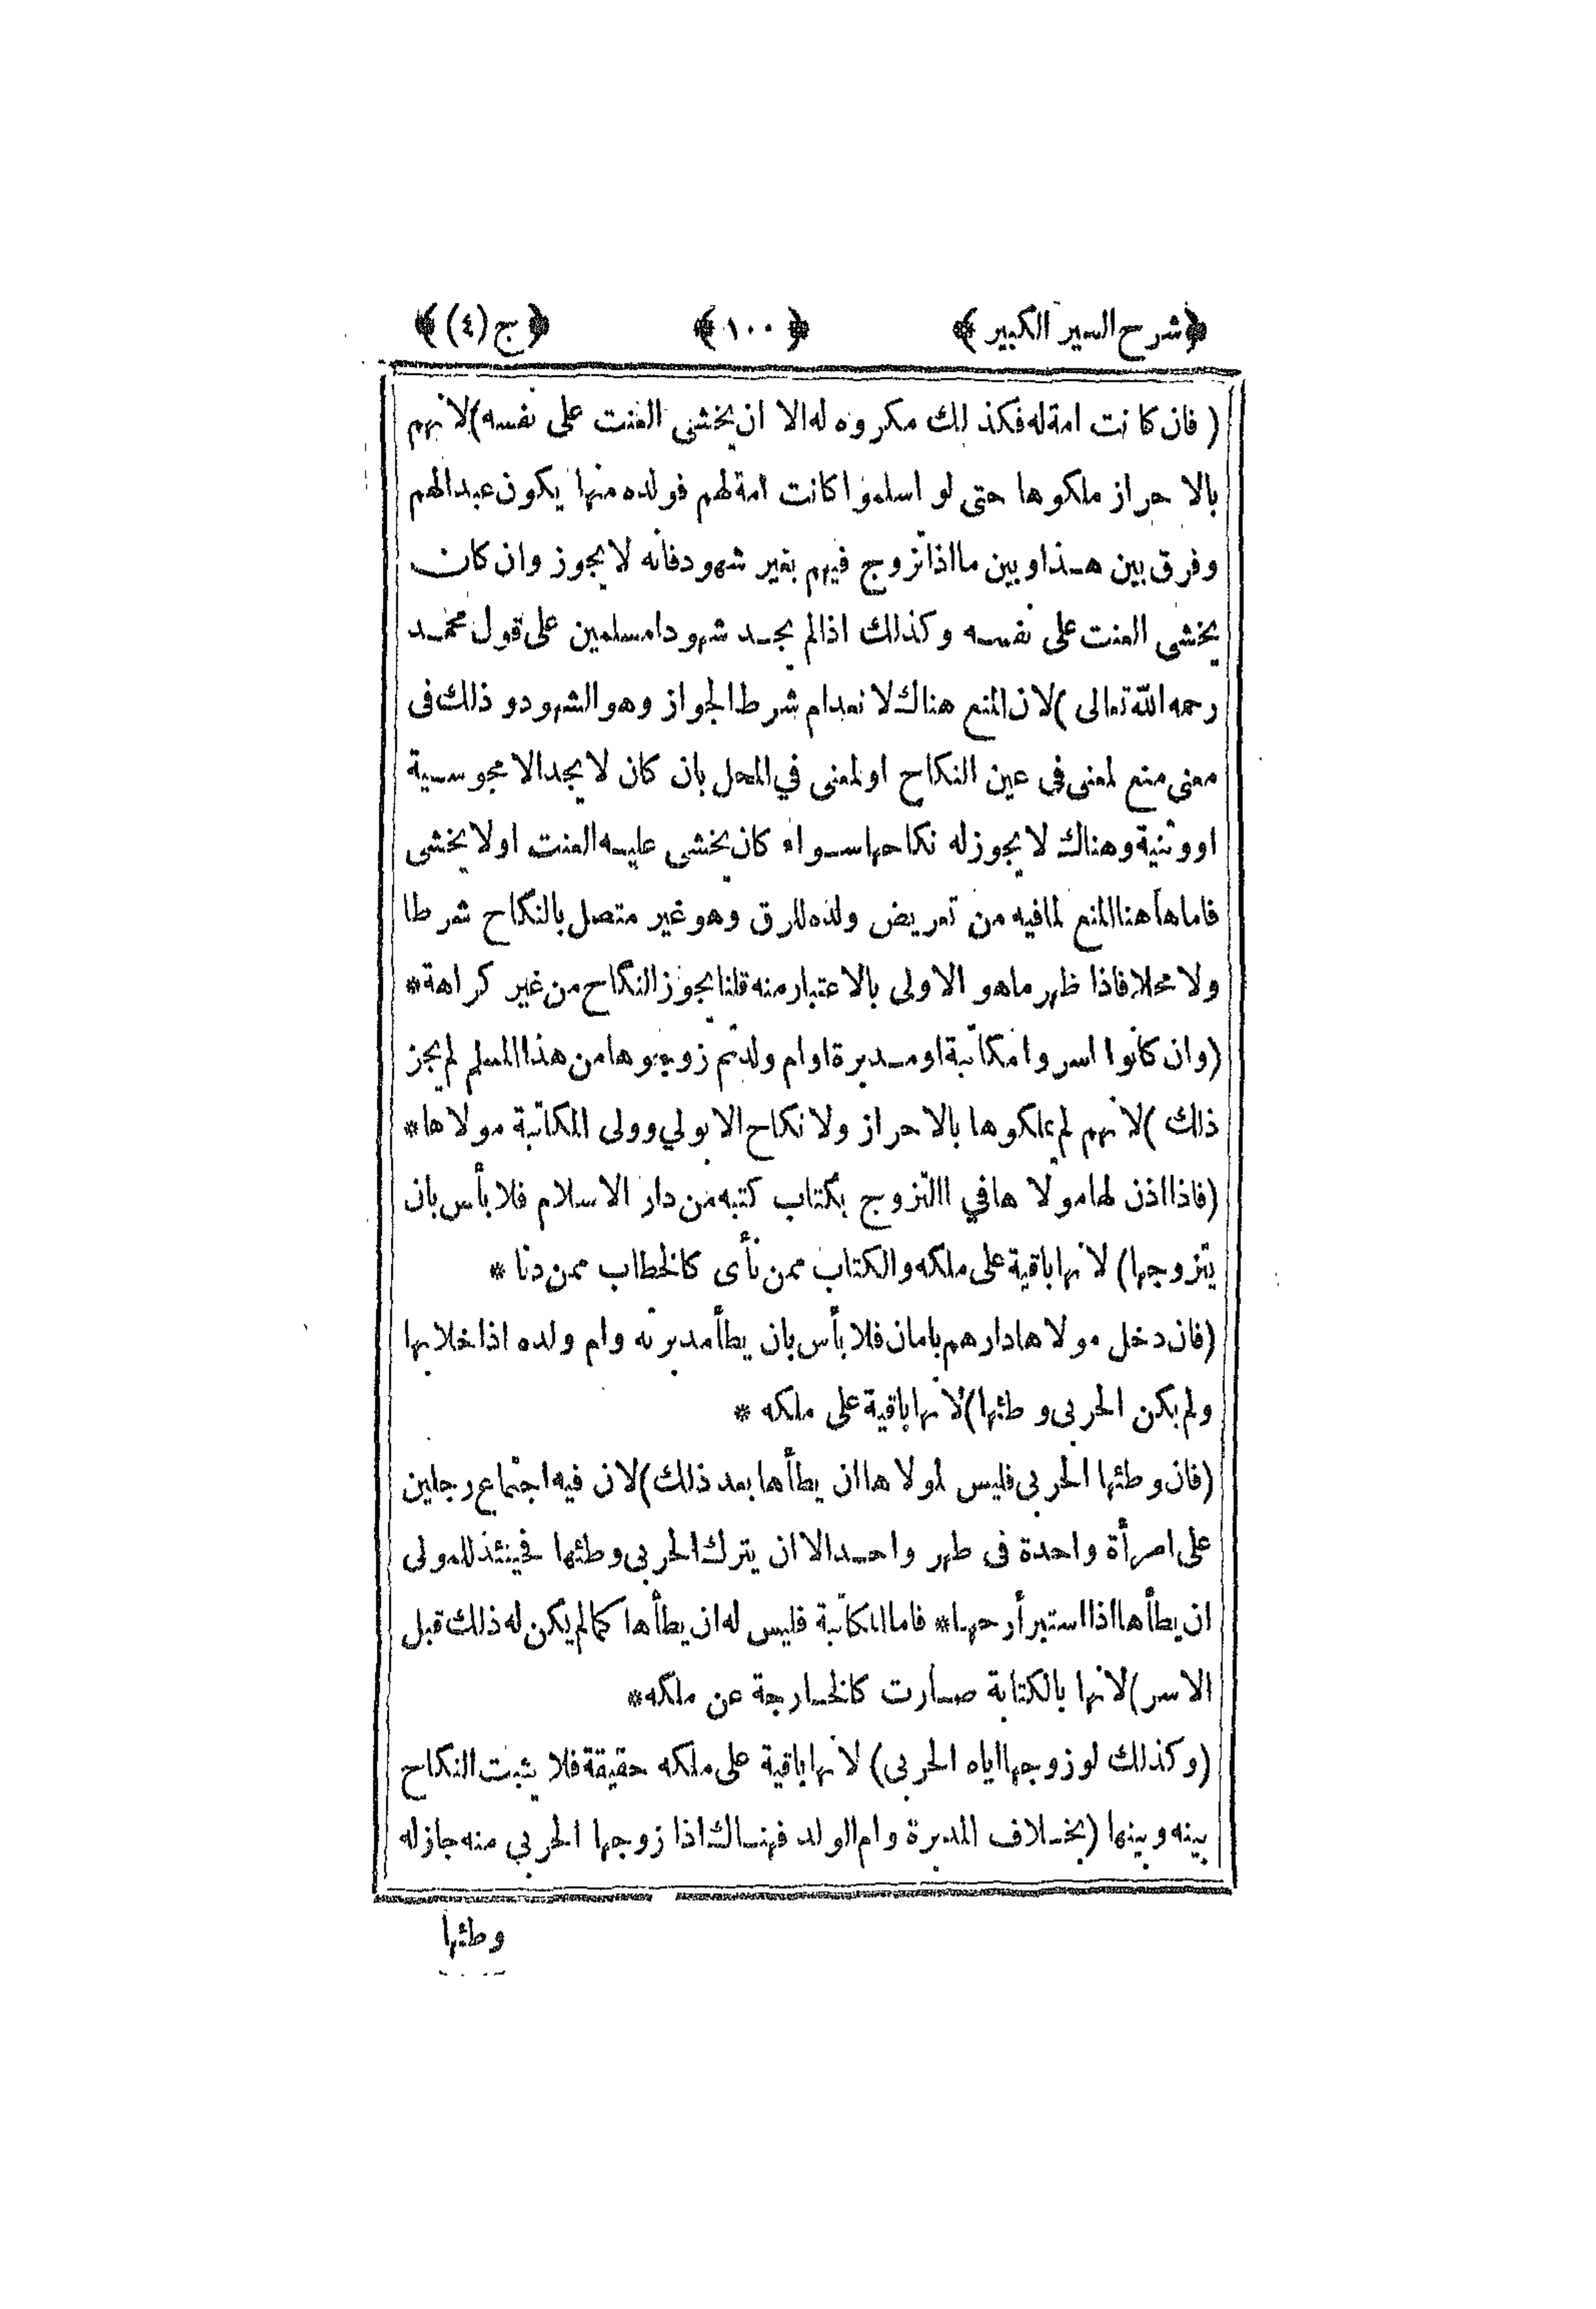 ﴿شرح السير الكبير﴾ ﴿١٠٠﴾ ﴿ج(٤)﴾
(فان كانت امة له فكذلك مكروه له الا ان يخشى العنت على نفسه) لانهم
بالاحراز ملكوها حتى لو اسلموا كانت امة لهم فولده منها يكون عبدا لهم
وفرق بين هذا وبين ما اذا تزوج فيهم بغير شهود فانه لا يجوز وان كان
يخشى العنت على نفسه وكذلك اذا لم يجد شهودا مسلمين على قول محمد
رحمه الله تعالى) لان المنع هناك لانعدام شرط الجواز وهو الشهود و ذلك فى
معنى منع لمعنى فى عين النكاح او لمعنى في المحل بان كان لا يجد الا مجوسية
او وثنية وهناك لا يجوز له نكاحها سواء كان يخشى عليه العنت او لا يخشى
فاما هاهنا المنع لما فيه من تعريض ولده للرق وهو غير متصل بالنكاح شرطا
ولا محلا فاذا ظهر ما هو الاولى بالاعتبار منه قلنا يجوز النكاح من غير كراهة*
(وان كانوا اسروا مكاتبة او مدبرة او ام ولد ثم زوجوها من هذا المسلم لم يجز
ذلك) لانهم لم يملكوها بالاحراز ولا نكاح الا بولي وولى المكاتبة مولاها*
(فاذا اذن لها مولاها في االتزوج بكتاب كتبه من دار الاسلام فلا بأس بان
يتزوجها) لانها باقية على ملكه والكتاب ممن نأى كالخطاب ممن دنا *
(فان دخل مولاها دارهم بامان فلا بأس بان يطأ مدبرته وام ولده اذا خلا بها
ولم يكن الحربى وطئها) لانها باقية على ملكه *
(فان وطئها الحربى فليس لمولاها ان يطأها بعد ذلك) لان فيه اجتماع رجلين
على امرأة واحدة فى طهر واحد الا ان يترك الحربى وطئها فحينئذ للمولى
ان يطأها اذا استبرأ رحمها* فاما المكاتبة فليس له ان يطأها كما لم يكن له ذلك قبل
الاسر) لانها بالكتابة صارت كالخارجة عن ملكه*
(وكذلك لو زوجها اياه الحربى) لانها باقية على ملكه حقيقة فلا يثبت النكاح
بينه وبينها (بخلاف المدبرة وام الولد فهناك اذا زوجها الحربي منه جاز له
وطئها